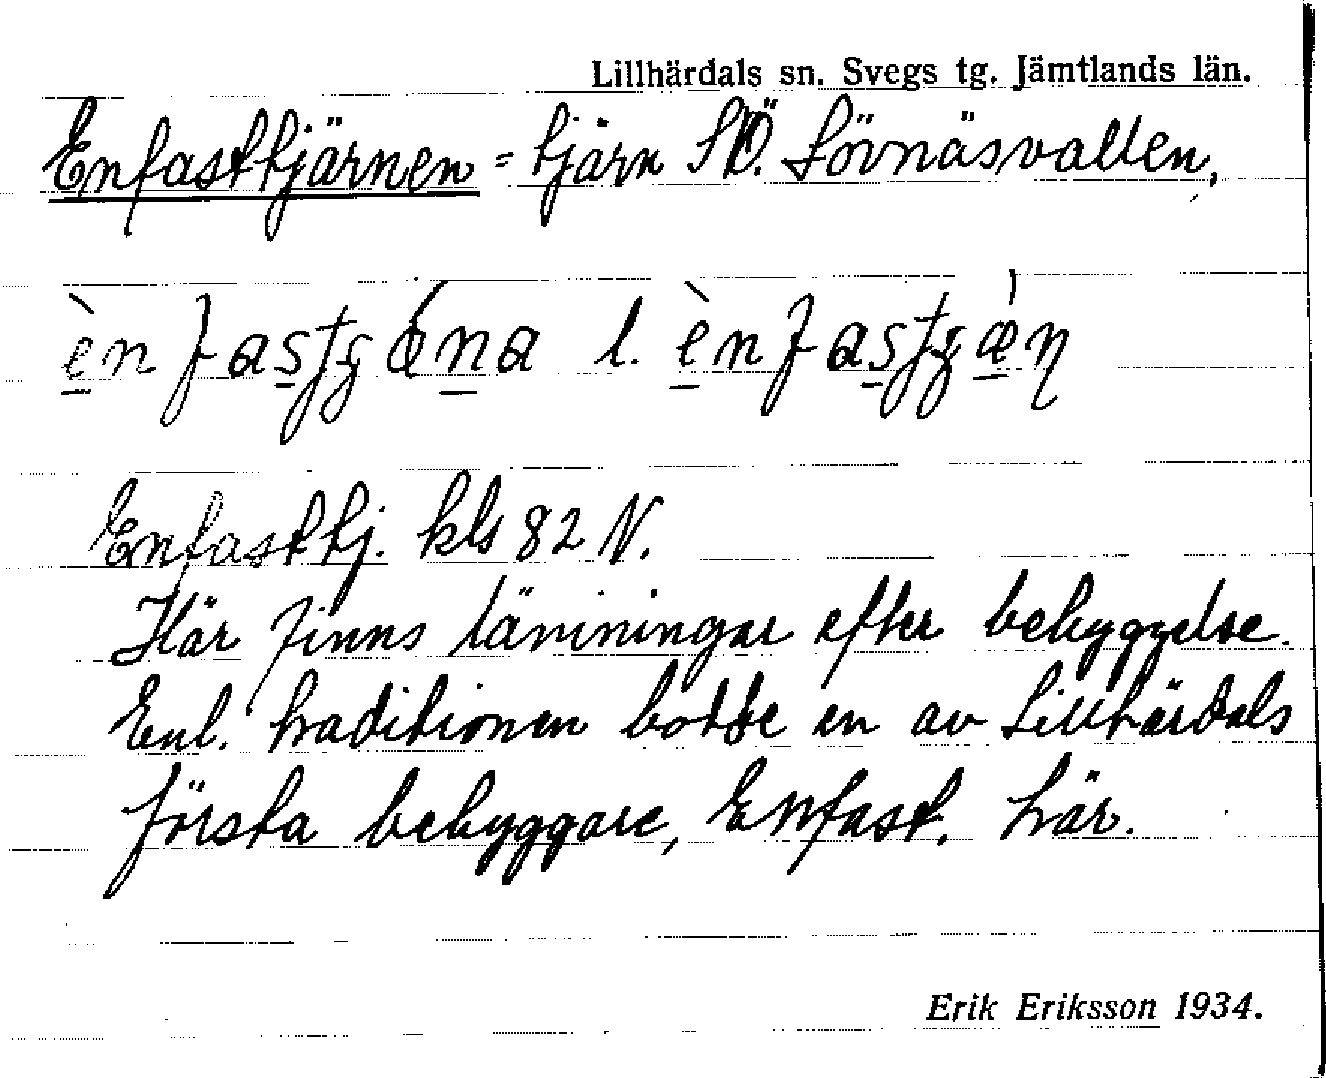 Lillhärdals sn. Svegs tg. Jämtlands län.
Enfasttjärnen = tjärn SÖ. Lövnäsvallen,
l.
Enfasttj. kls 82 N.
Här finns lämningar efter bebyggelse.
Enl. traditionen bodde en av Lillhärdals
första bebyggare, Enfast, här.
Erik Eriksson 1934.